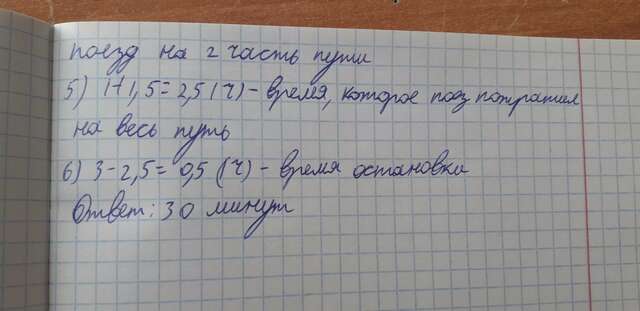 поезд на 2 часть пути
5) 1+1,5=2,5 (ч) - время, которое поез потратил
на весь путь
6) 3-2,5= 0,5 (ч) - время остановки
Ответ: 30 минут